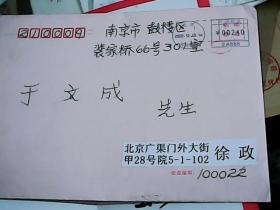 210009
南京市 鼓楼区
裴家桥66号301室
¥00240
于文成 先生
北京广渠门外大街
甲28号院5-1-102
徐政
邮政编码：100022